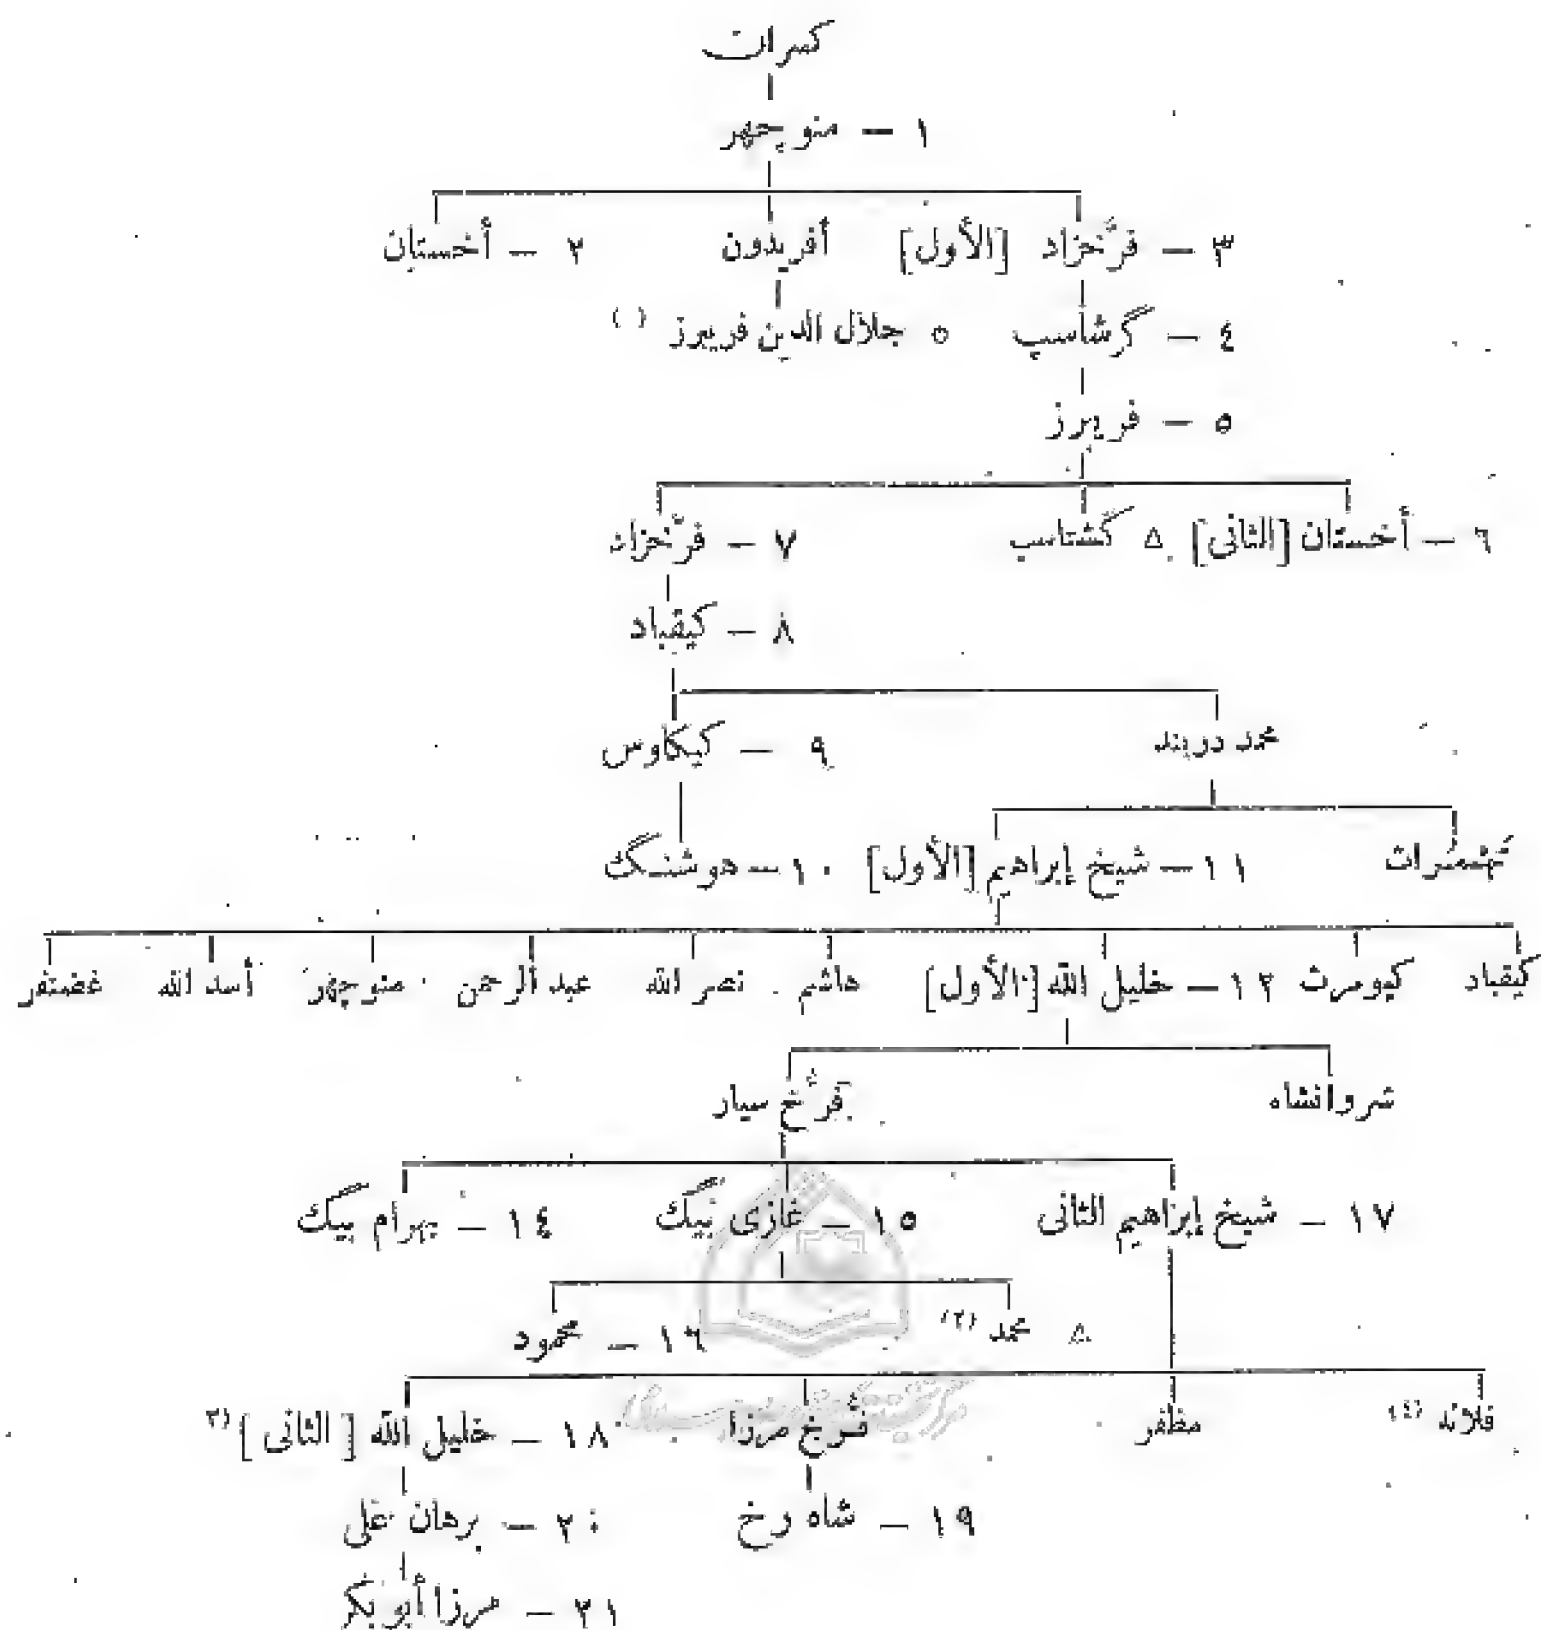 كسرات
١ – منوچهر
٣ – فرَّخزاد [الأول] أفريدون ٢ – أخستان
٤ – گرشاسپ ٥ جلال الدين فريبرز
٥ – فريبرز
٦ – أخستان [الثانى] △ گشتاسب ٧ – فرَّخزاد
٨ – كيقباد
محمد دربند ٩ – كيكاوس
تهمتن ١١ – شيخ إبراهيم [الأول] ١٠ – هوشنگ
كيقباد كيومرث ١٢ – خليل الله [الأول] هاشم نصر الله عبد الرحمن منوچهر أسد الله غضنفر
شروانشاه فرَّخ سيار
١٧ – شيخ إبراهيم الثانى ١٥ – غازى بيگ ١٤ – بهرام بيگ
△ محمد (٢) ١٦ – محمود
فلانه (٤) مظفر فرُّخ مرزا ١٨ – خليل الله [الثانى] (٣)
١٩ – شاه رخ ٢٠ – برهان على
٢١ – مرزا أبو بكر